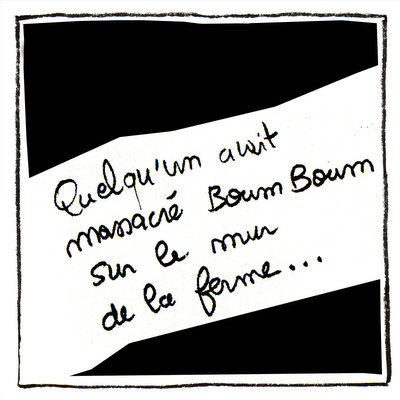 Quelqu'un avait
massacré Boum Boum
sur le mur
de la ferme...